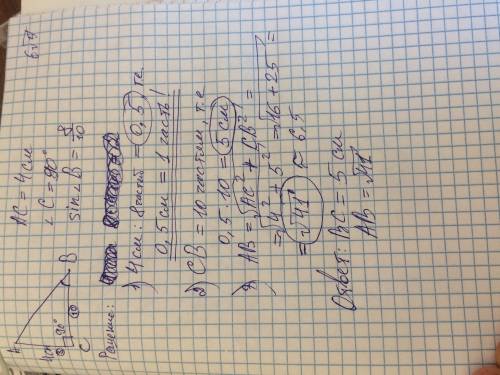 AC = 4 см
∠C = 90°
sin∠B = 8/10
A
B
C
90°
Решение:
1) 4 см : 8 частей = 0,5, т.е.
0,5 см = 1 часть!
2) CB = 10 частям, т.е
0,5 · 10 = 5 см
3) AB = √AC² + CB² =
= √4² + 5² = √16 + 25 =
= √41 ≈ 6,5
Ответ: BC = 5 см
AB = √41